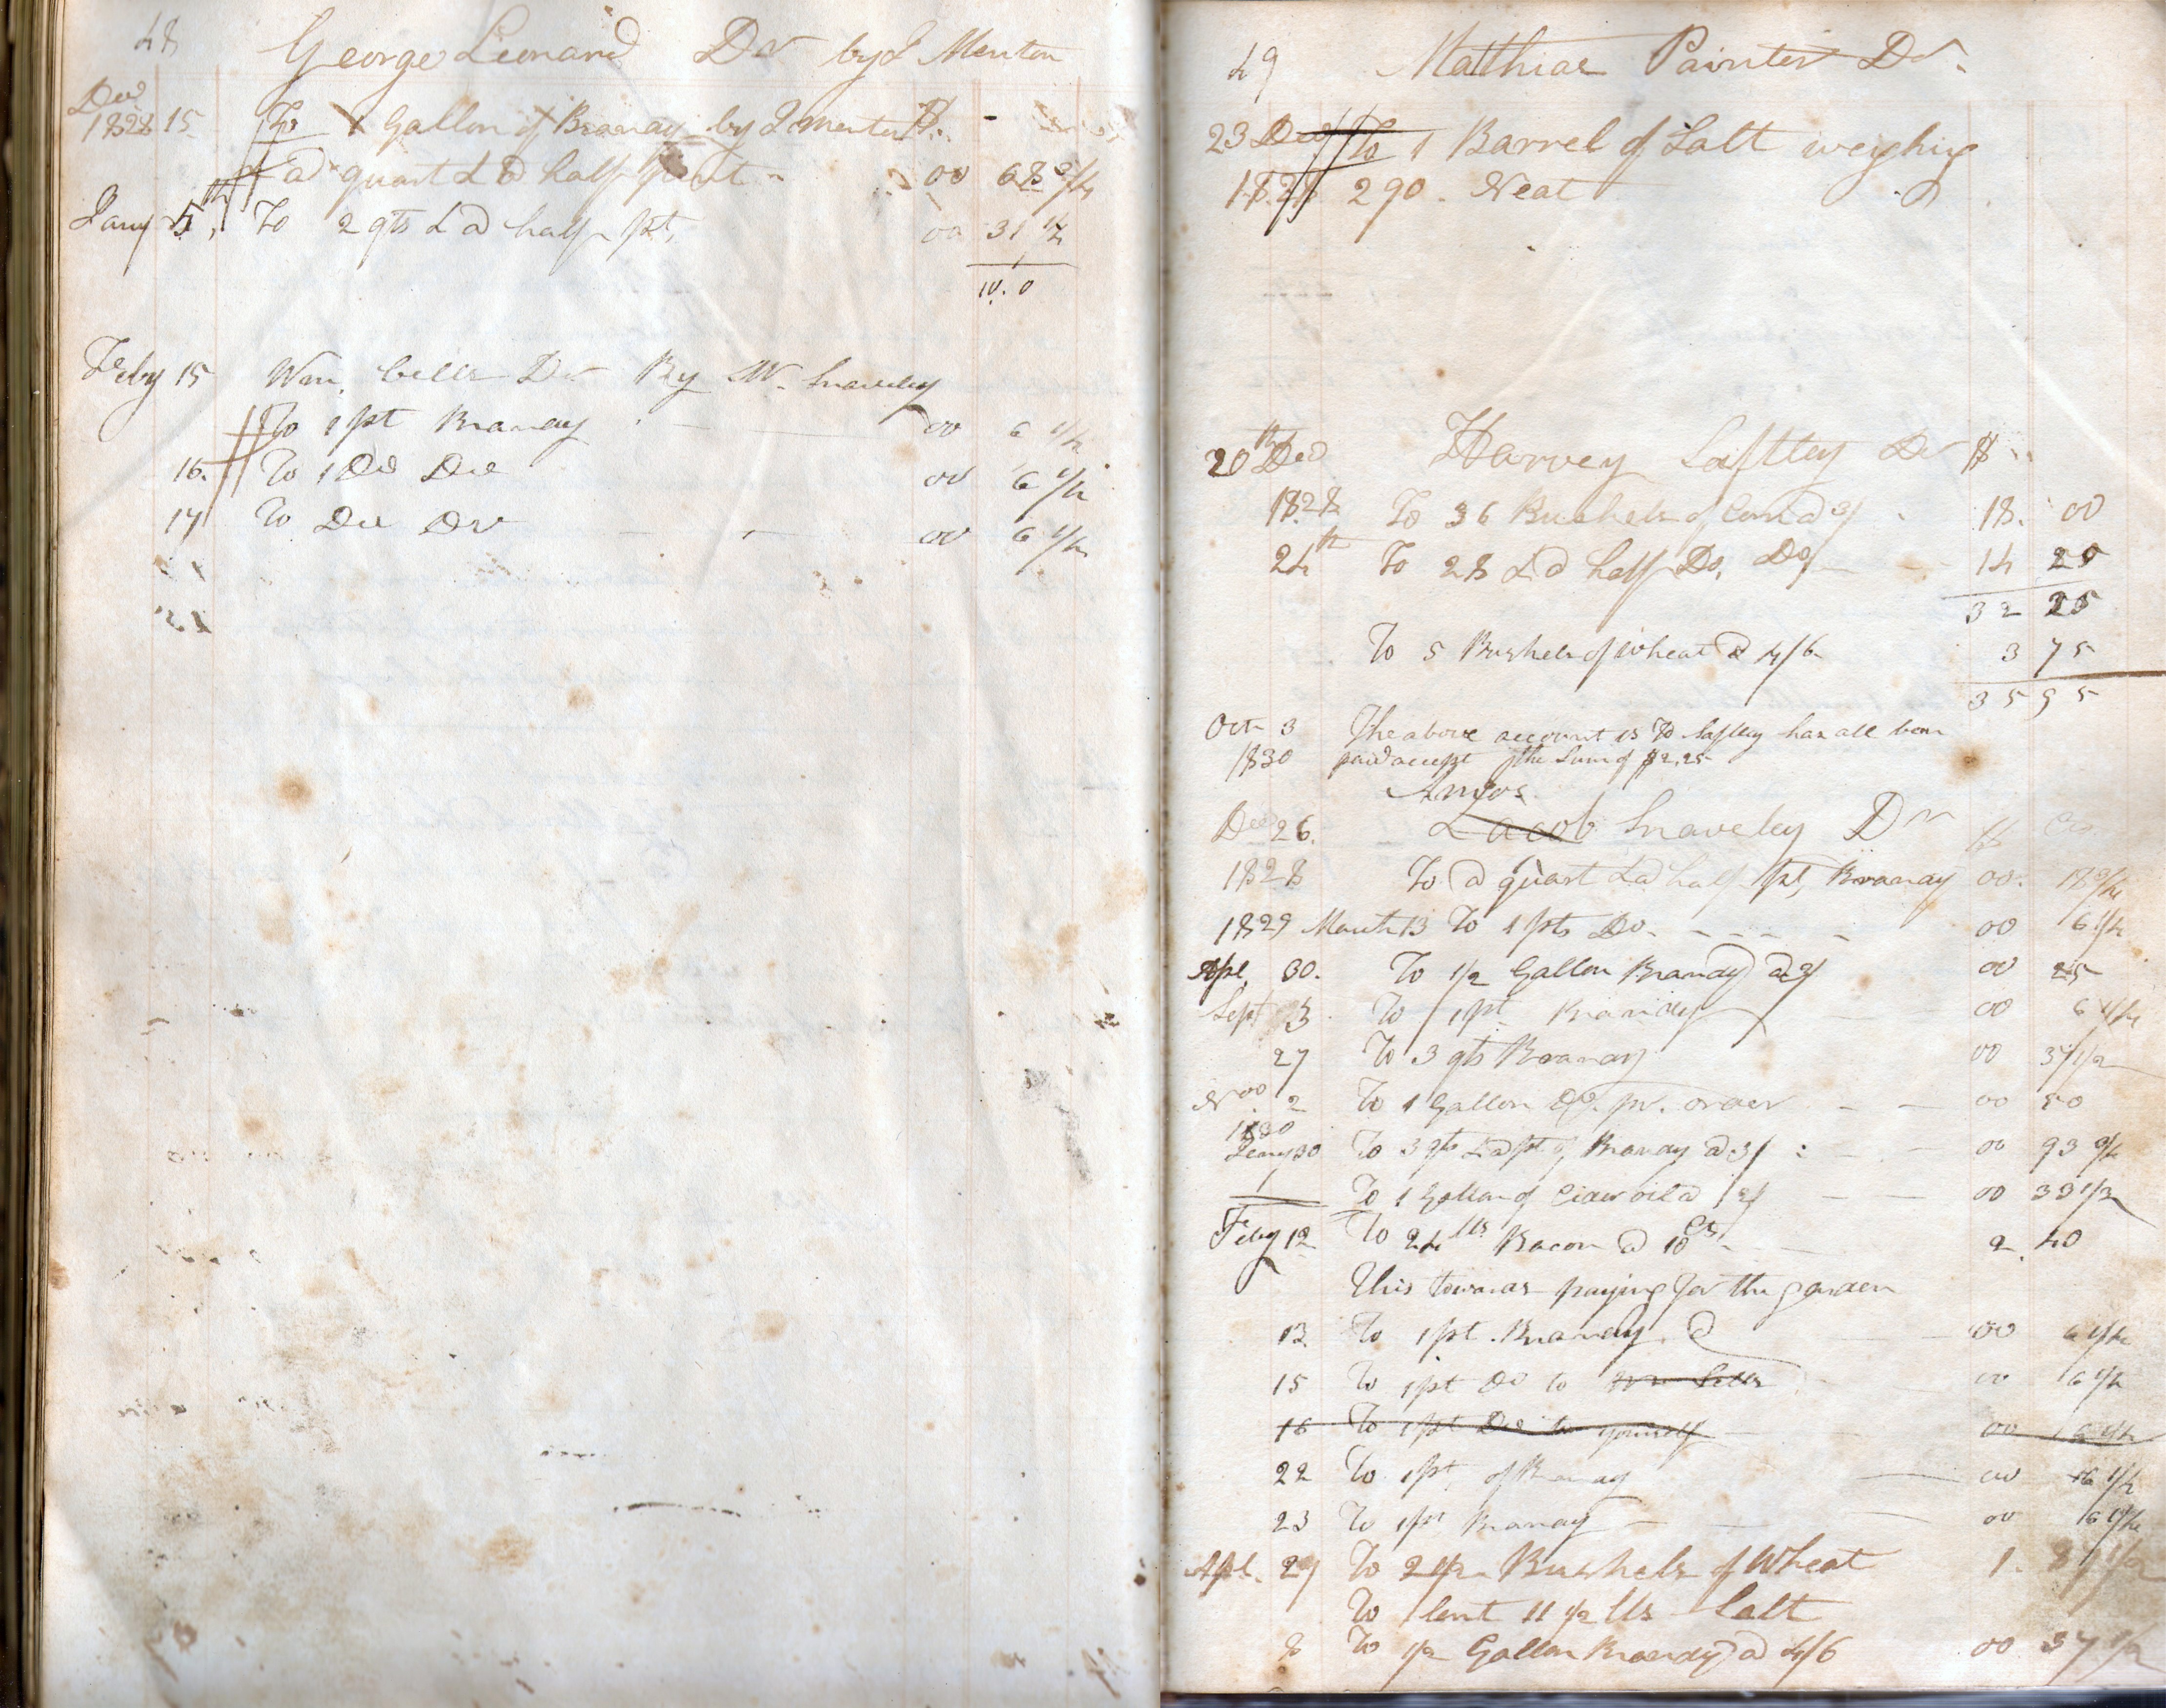 48 George Leonard Dr by J Menton
Decr
1828 15 To 1 Gallon of Brandy by J Menton $. -
& a quart & a half pint - 00 68 3/4
Jany 5th, To 2 qts & a half pt, 00 31 1/4
10.0
Feby 15 Wm. Cells Dr By W. Snaveley
To 1 pt Brandy 00 6 1/4
16. To 1 Do Do 00 6 1/4
17 To Do Do 00 6 1/4
49 Matthias Painter Dr.
23 Decr To 1 Barrel of Salt weighing
1828 290. Neat
20th Decr Harvey Saftley Dr $
1828 To 36 Bushels of Corn @ 3/ 18. 00
24th To 28 & a half Do, Do, 14 25
32 25
To 5 Bushels of Wheat @ 4/6 3 75
35 95
Octr 3 The above account is to Saftley has all been
1830 paid accept the Sum of $2,25
Amos
Decr 26. Jacob Snaveley Dr $ Cts
1828 To a quart & a half pt, Brandy 00. 18 3/4
1829 March 13 To 1 pts Do. 00 6 1/4
Apl, 30. To 1/2 Gallon Brandy @ 3/ 00 25
Sept 3 To 1 pt Brandy 00 6 1/4
27 To 3 qts Brandy 00 37 1/2
Nov 2 To 1 Gallon Do. pr. order 00 50
1830
Jany 30 To 3 qts & a pt of Brandy @ 3/ 00 93 3/4
To 1 Gallon of Cider oil @ 2/ 00 33 1/3
Feby 12 To 24 lbs Bacon @ 10 Cts 2. 40
This towards paying for the garden
13 To 1 pt. Brandy 00 6 1/4
15 To 1 pt Do to Wm Cells 00 6 1/4
16 To 1 pt Do to yourself 00 6 1/4
22 To 1 pt, of Brandy 00 6 1/4
23 To 1 pt Brandy 00 6 1/4
Apl. 27 To 2 1/2 Bushels of Wheat 1. 87 1/2
To lent 11 1/2 lbs Salt
8 To 1/2 Gallon Brandy @ 4/6 00 37 1/2